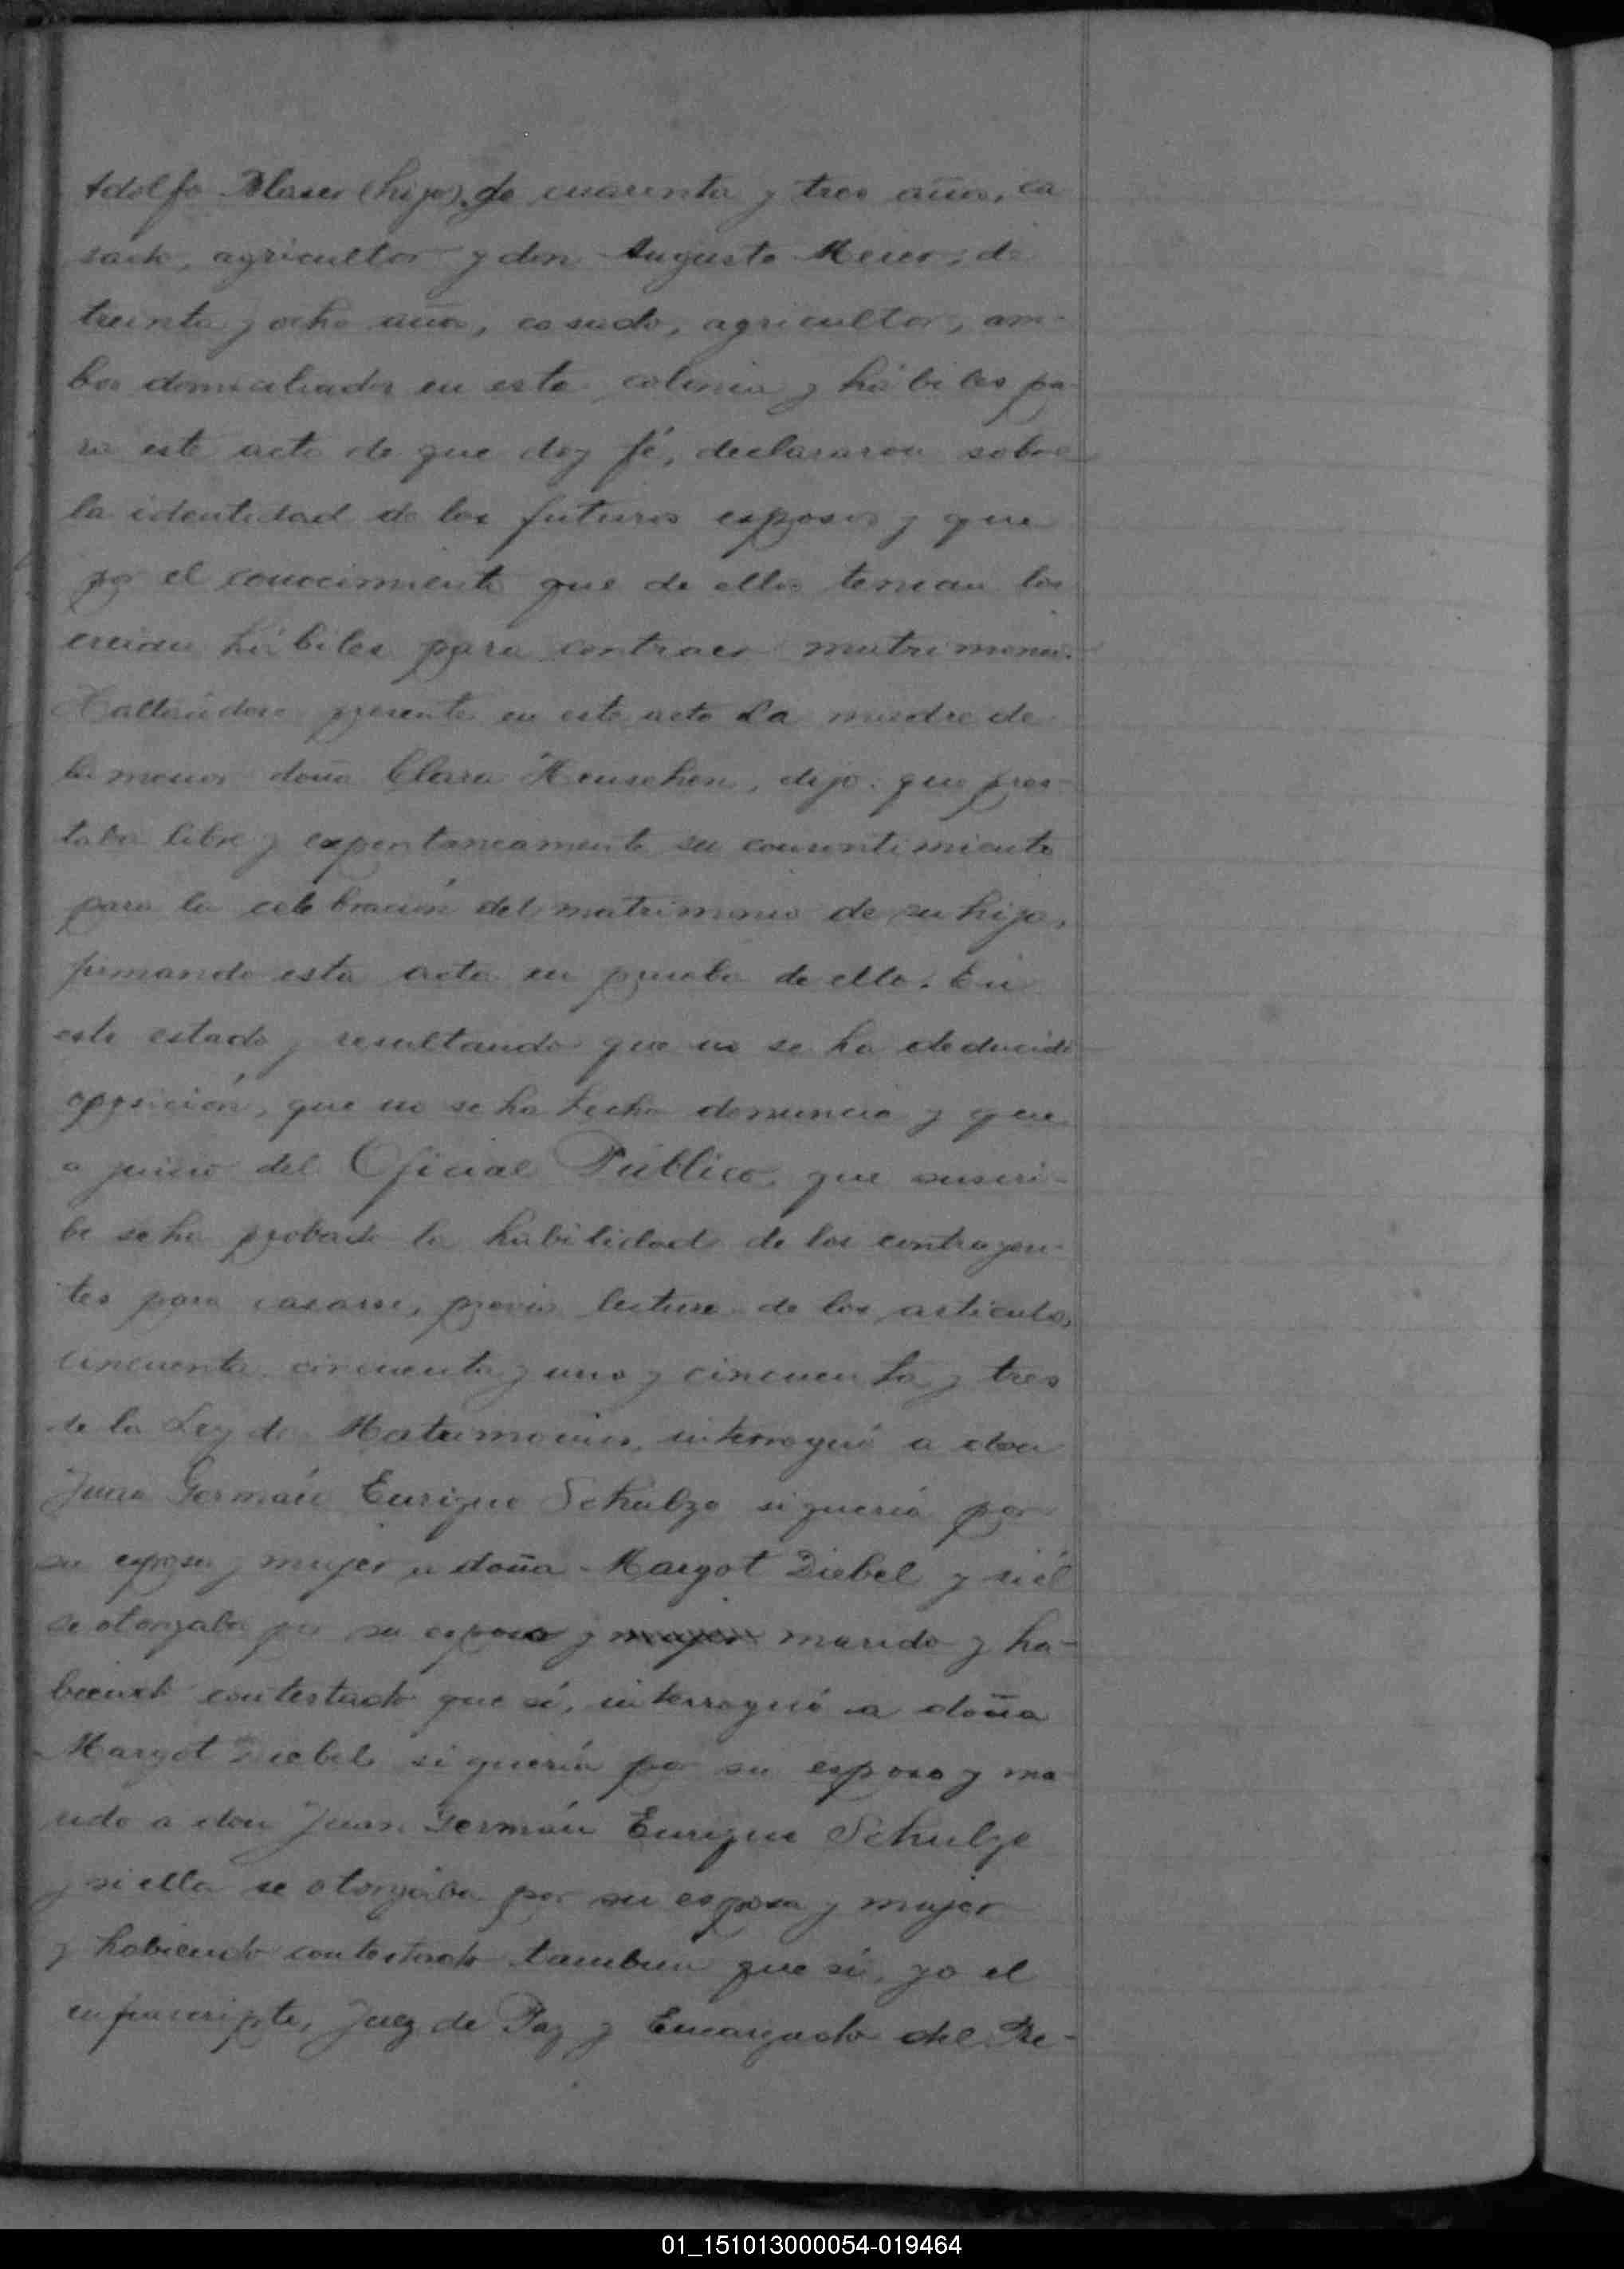 Adolfo Blaser (hijo), de cuarenta y tres años, ca
sado, agricultor y don Augusto Meier, de
treinta y ocho años, casado, agricultor, am-
bos domiciliados en esta colonia y hábiles pa-
ra este acto de que doy fé, declararon sobre
la identidad de los futuros esposos y que
por el conocimiento que de ellos tenian los
creian hábiles para contraer matrimonio.
Hallándose presente en este acto La madre de
la menor doña Clara Heuschen, dijo: que pres-
taba libre y expontaneamente su consentimiento
para la celebración del matrimonio de su hija,
firmando esta acta en prueba de ello. En
este estado y resultando que no se ha deducido
oposición, que no se ha hecho denuncia y que
a juicio del Oficial Público, que suscri-
be se ha probado la habilidad de los contrayen-
tes para casarse, previa lectura de los artículos,
cincuenta, cincuenta y uno y cincuenta y tres
de la Ley de Matrimonios, interrogué a don
Juan Germán Enrique Schulze si quería por
su esposa y mujer a doña Margot Diebel y si él
se otorgaba por su esposo y marido y ha-
biendo contestado que sí, interrogué a doña
Margot Diebel si quería por su esposo y ma
rido a don Juan Germán Enrique Schulze
y si ella se otorgaba por su esposa y mujer
y habiendo contestado tambien que sí, yo el
infrascripto, Juez de Paz y Encargado del Re-
01_151013000054-019464